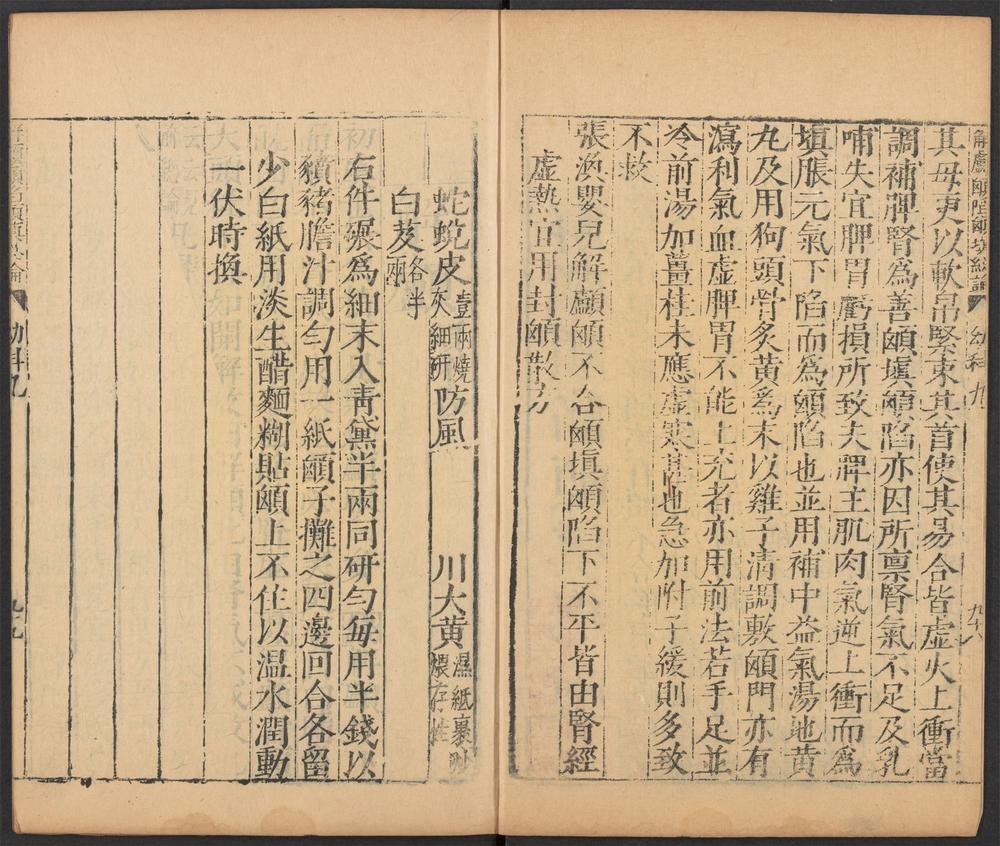 解顱顖陷顖填總論
幼科
九
九十八
其母更以軟帛緊束其首使其易合皆虛火上衝當
調補脾腎爲善顖填顖陷亦因所禀腎氣不足及乳
哺失宜脾胃虧損所致夫脾主肌肉氣逆上衝而爲
填脹元氣下陷而爲顖陷也並用補中益氣湯地黄
丸及用狗頭骨炙黄爲末以雞子清調敷顖門亦有
瀉利氣血虚脾胃不能上充者亦用前法若手足並
冷前湯加薑桂未應虚寒甚也急加附子緩則多致
不救
張渙嬰兒解顱顖不合顖填顖陷下不平皆由腎經
虚熱宜用封顖散方
蛇蛻皮壹兩燒灰細研防風
川大黄濕紙裹 煨存性
白芨各半兩
右件碾爲細末入青黛半兩同研勻每用半錢以
豶豬膽汁調勻用一紙顖子攤之四邊回合各留
少白紙用淡生醋麵糊貼顖上不住以温水潤動
一伏時換
幼科九
九九